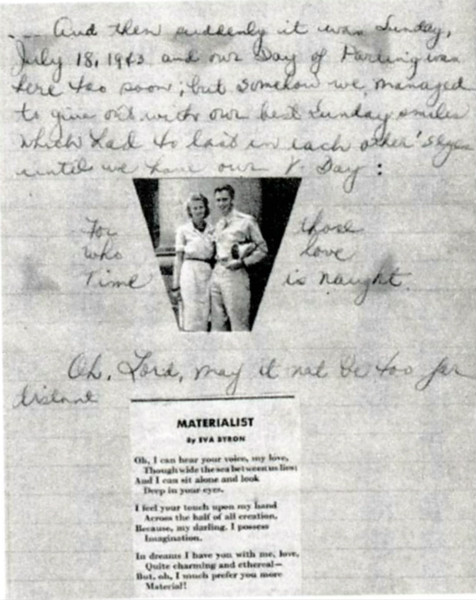 .... And then suddenly it was Sunday,
July 18, 1943 and our Day of Parting was
here too soon; but somehow we managed
to give out with our best Sunday smiles
which had to last in each other's eyes
until we have our V Day :
For those
who love
Time is naught.
Oh, Lord, may it not be too far
distant
MATERIALIST
By EVA BYRON
Oh, I can hear your voice, my love,
Though wide the sea between us lies;
And I can sit alone and look
Deep in your eyes.
I feel your touch upon my hand
Across the half of all creation,
Because, my darling, I possess
Imagination.
In dreams I have you with me, love,
Quite charming and ethereal—
But, oh, I much prefer you more
Material!